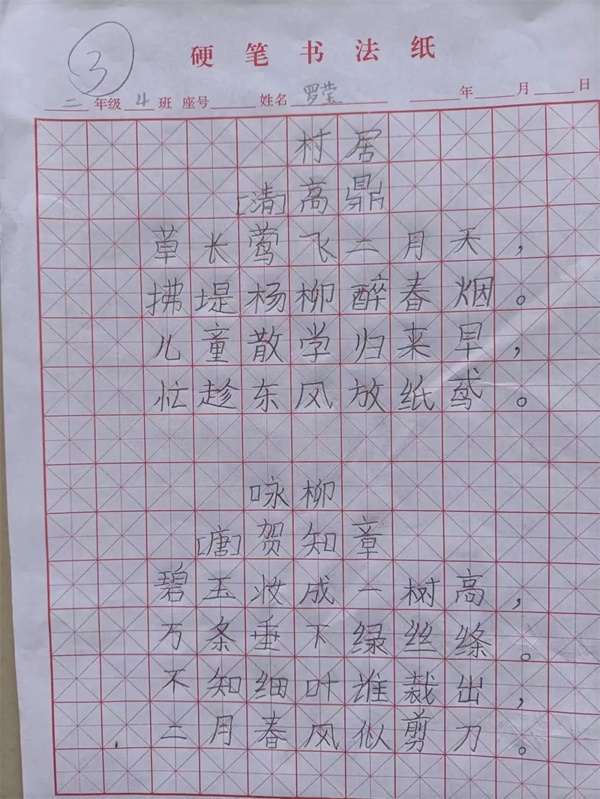 3
硬笔书法纸
二年级4班 座号 姓名 罗莹 年 月 日
村居
[清]高鼎
草长莺飞二月天，
拂堤杨柳醉春烟。
儿童散学归来早，
忙趁东风放纸鸢。
咏柳
[唐]贺知章
碧玉妆成一树高，
万条垂下绿丝绦。
不知细叶谁裁出，
二月春风似剪刀。